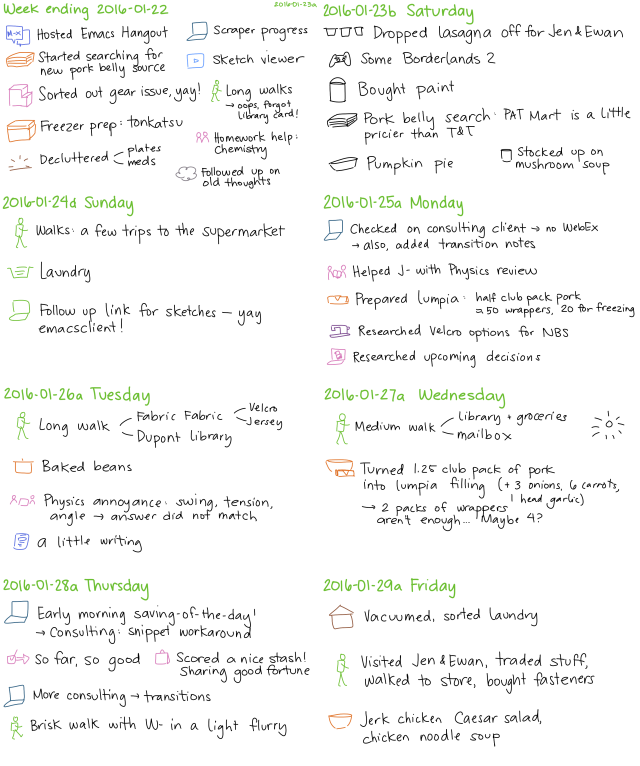 Week ending 2016-01-22
2016-01-23a
M-x
Hosted Emacs Hangout
Started searching for
new pork belly source
Sorted out gear issue, yay!
Freezer prep: tonkatsu
Decluttered
plates
meds
Scraper progress
Sketch viewer
Long walks
→ oops, forgot
library card!
Homework help:
Chemistry
Followed up on
old thoughts
2016-01-23b Saturday
Dropped lasagna off for Jen & Ewan
Some Borderlands 2
Bought paint
Pork belly search: PAT Mart is a little
pricier than T&T
Pumpkin pie
Stocked up on
mushroom soup
2016-01-24d Sunday
Walks: a few trips to the supermarket
Laundry
Follow up link for sketches – yay
emacsclient!
2016-01-25a Monday
Checked on consulting client → no WebEx
→ also, added transition notes
Helped J- with Physics review
Prepared lumpia: half club pack pork
= 50 wrappers, 20 for freezing
Researched Velcro options for NBS
Researched upcoming decisions
2016-01-26a Tuesday
Long walk
Fabric Fabric
Velcro
Jersey
Dupont library
Baked beans
Physics annoyance: swing, tension,
angle → answer did not match
a little writing
2016-01-27a Wednesday
Medium walk
library + groceries
mailbox
Turned 1.25 club pack of pork
into lumpia filling (+ 3 onions, 6 carrots,
1 head garlic)
→ 2 packs of wrappers
aren't enough... Maybe 4?
2016-01-28a Thursday
Early morning saving-of-the-day!
→ Consulting: snippet workaround
So far, so good
Scored a nice stash!
Sharing good fortune
More consulting → transitions
Brisk walk with W- in a light flurry
2016-01-29a Friday
Vacuumed, sorted laundry
Visited Jen & Ewan, traded stuff,
walked to store, bought fasteners
Jerk chicken Caesar salad,
chicken noodle soup